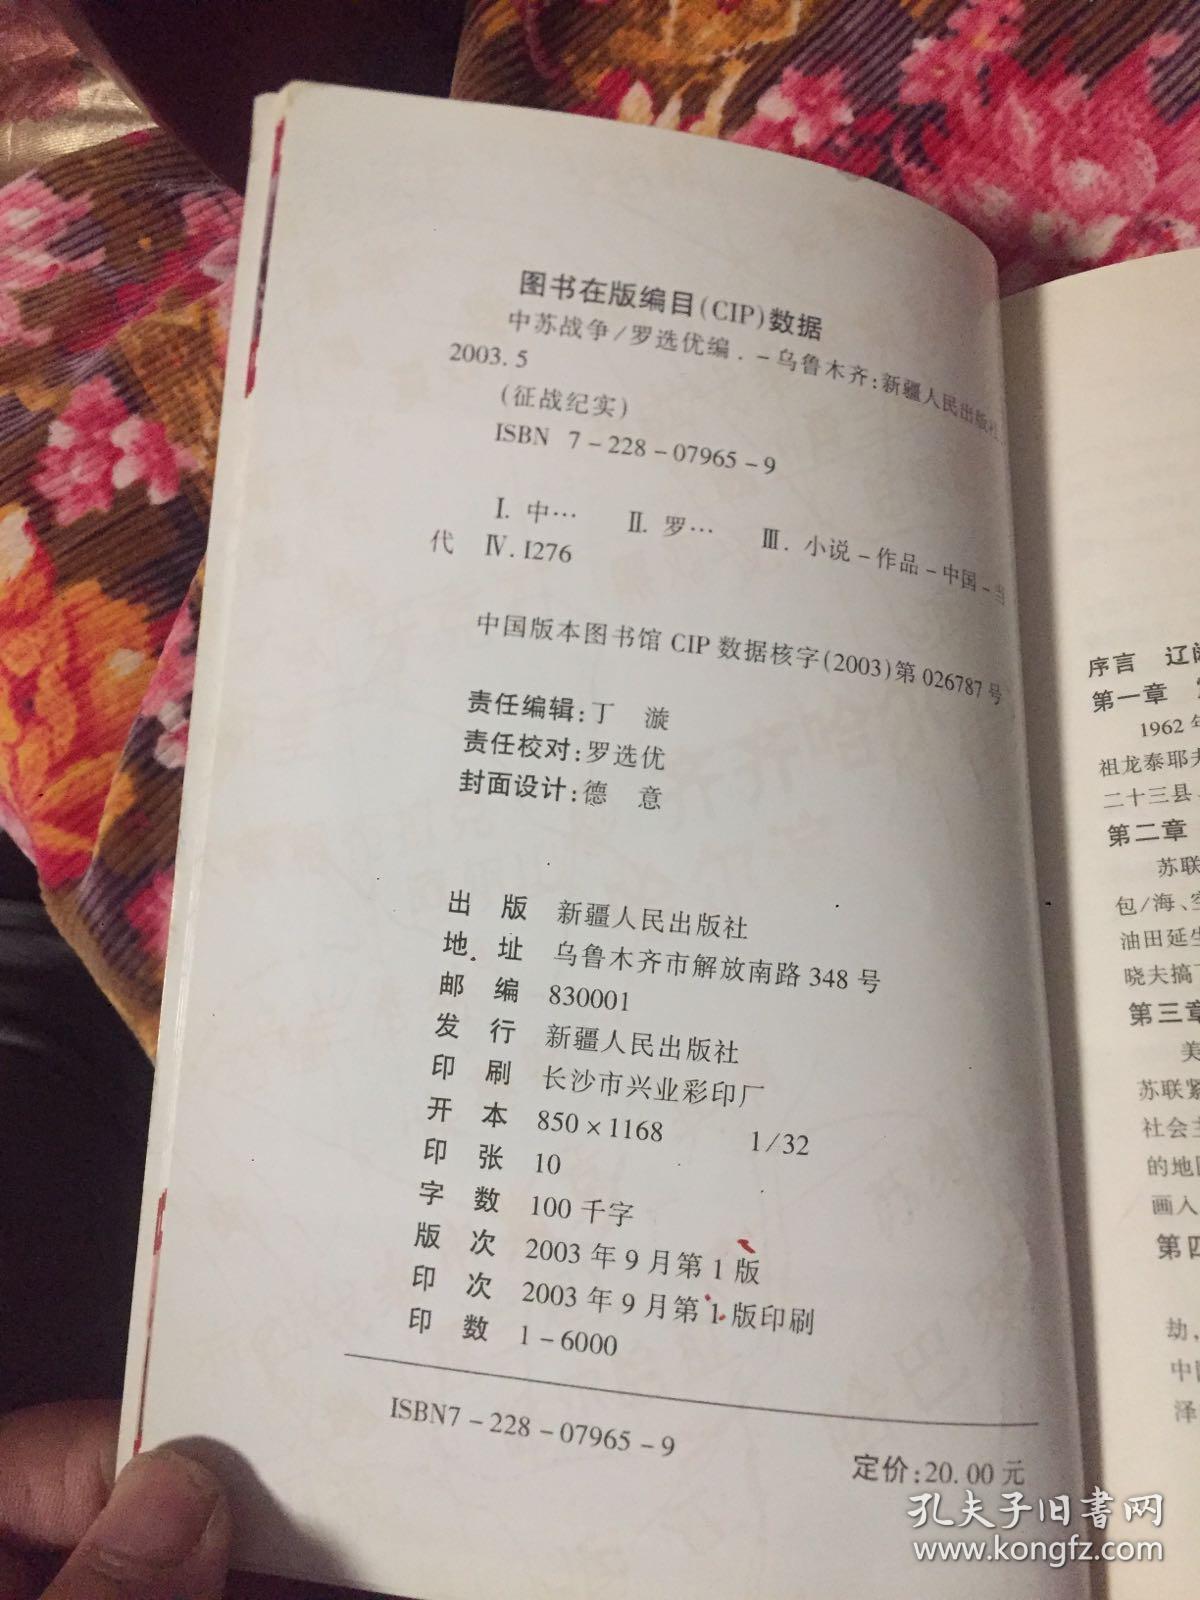 图书在版编目(CIP)数据
中苏战争/罗选优编.－乌鲁木齐:新疆人民出版社
2003.5
(征战纪实)
ISBN 7－228－07965－9
Ⅰ.中… Ⅱ.罗… Ⅲ.小说－作品－中国－当
代 Ⅳ.I276
中国版本图书馆 CIP 数据核字(2003)第 026787 号
责任编辑:丁 漩
责任校对:罗选优
封面设计:德 意
出 版 新疆人民出版社
地 址 乌鲁木齐市解放南路 348 号
邮 编 830001
发 行 新疆人民出版社
印 刷 长沙市兴业彩印厂
开 本 850×1168 1/32
印 张 10
字 数 100 千字
版 次 2003 年 9 月第 1 版
印 次 2003 年 9 月第 1 版印刷
印 数 1－6000
ISBN7－228－07965－9
定价:20.00 元
序言 辽
第一章
1962 年
祖龙泰耶夫
二十三县
第二章
苏联
包/海、空
油田延生
晓夫搞
第三章
美
苏联紧
社会主
的地
画入
第四
劫,
中国
泽
孔夫子旧书网
www.kongfz.com